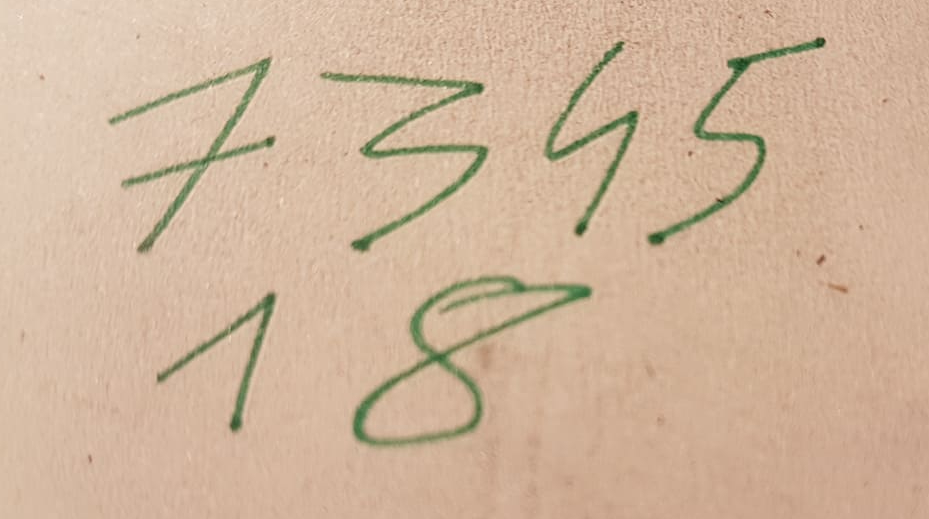 7345
18